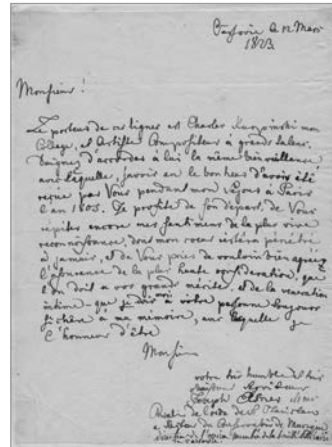 Varsovie ce 12 Mars
1823.
Monsieur!
Le porteur de ces lignes est Charles Kurpinski mon
Collegue, et Artiste Compositeur à grands talens.
Daignez d'accorder à lui la même bienveillance
avec laquelle, j'avois eu le bonheur d'avoir été
reçue par Vous pendant mon sejour à Paris
l'an 1805. Je profite de son depart, de Vous
repeter encore mes sentimens de la plus vive
reconnoissance, dont mon coeur restera penetré
à jamais, et de Vous prier de vouloir bien agréer
l'assurance de la plus haute consideration, que
l'on doit a vos grands mérites, et de la veneration
intime que je dois à votre personne toujours
si chère à ma mémoire, avec laquelle j'ai
l'honneur d'être
Monsieur
votre très humble et très
Serviteur
Joseph Elsner
de l'ordre de St Stanislas
Recteur du Conservatoire de Musique
de l'opera
à Varsovie